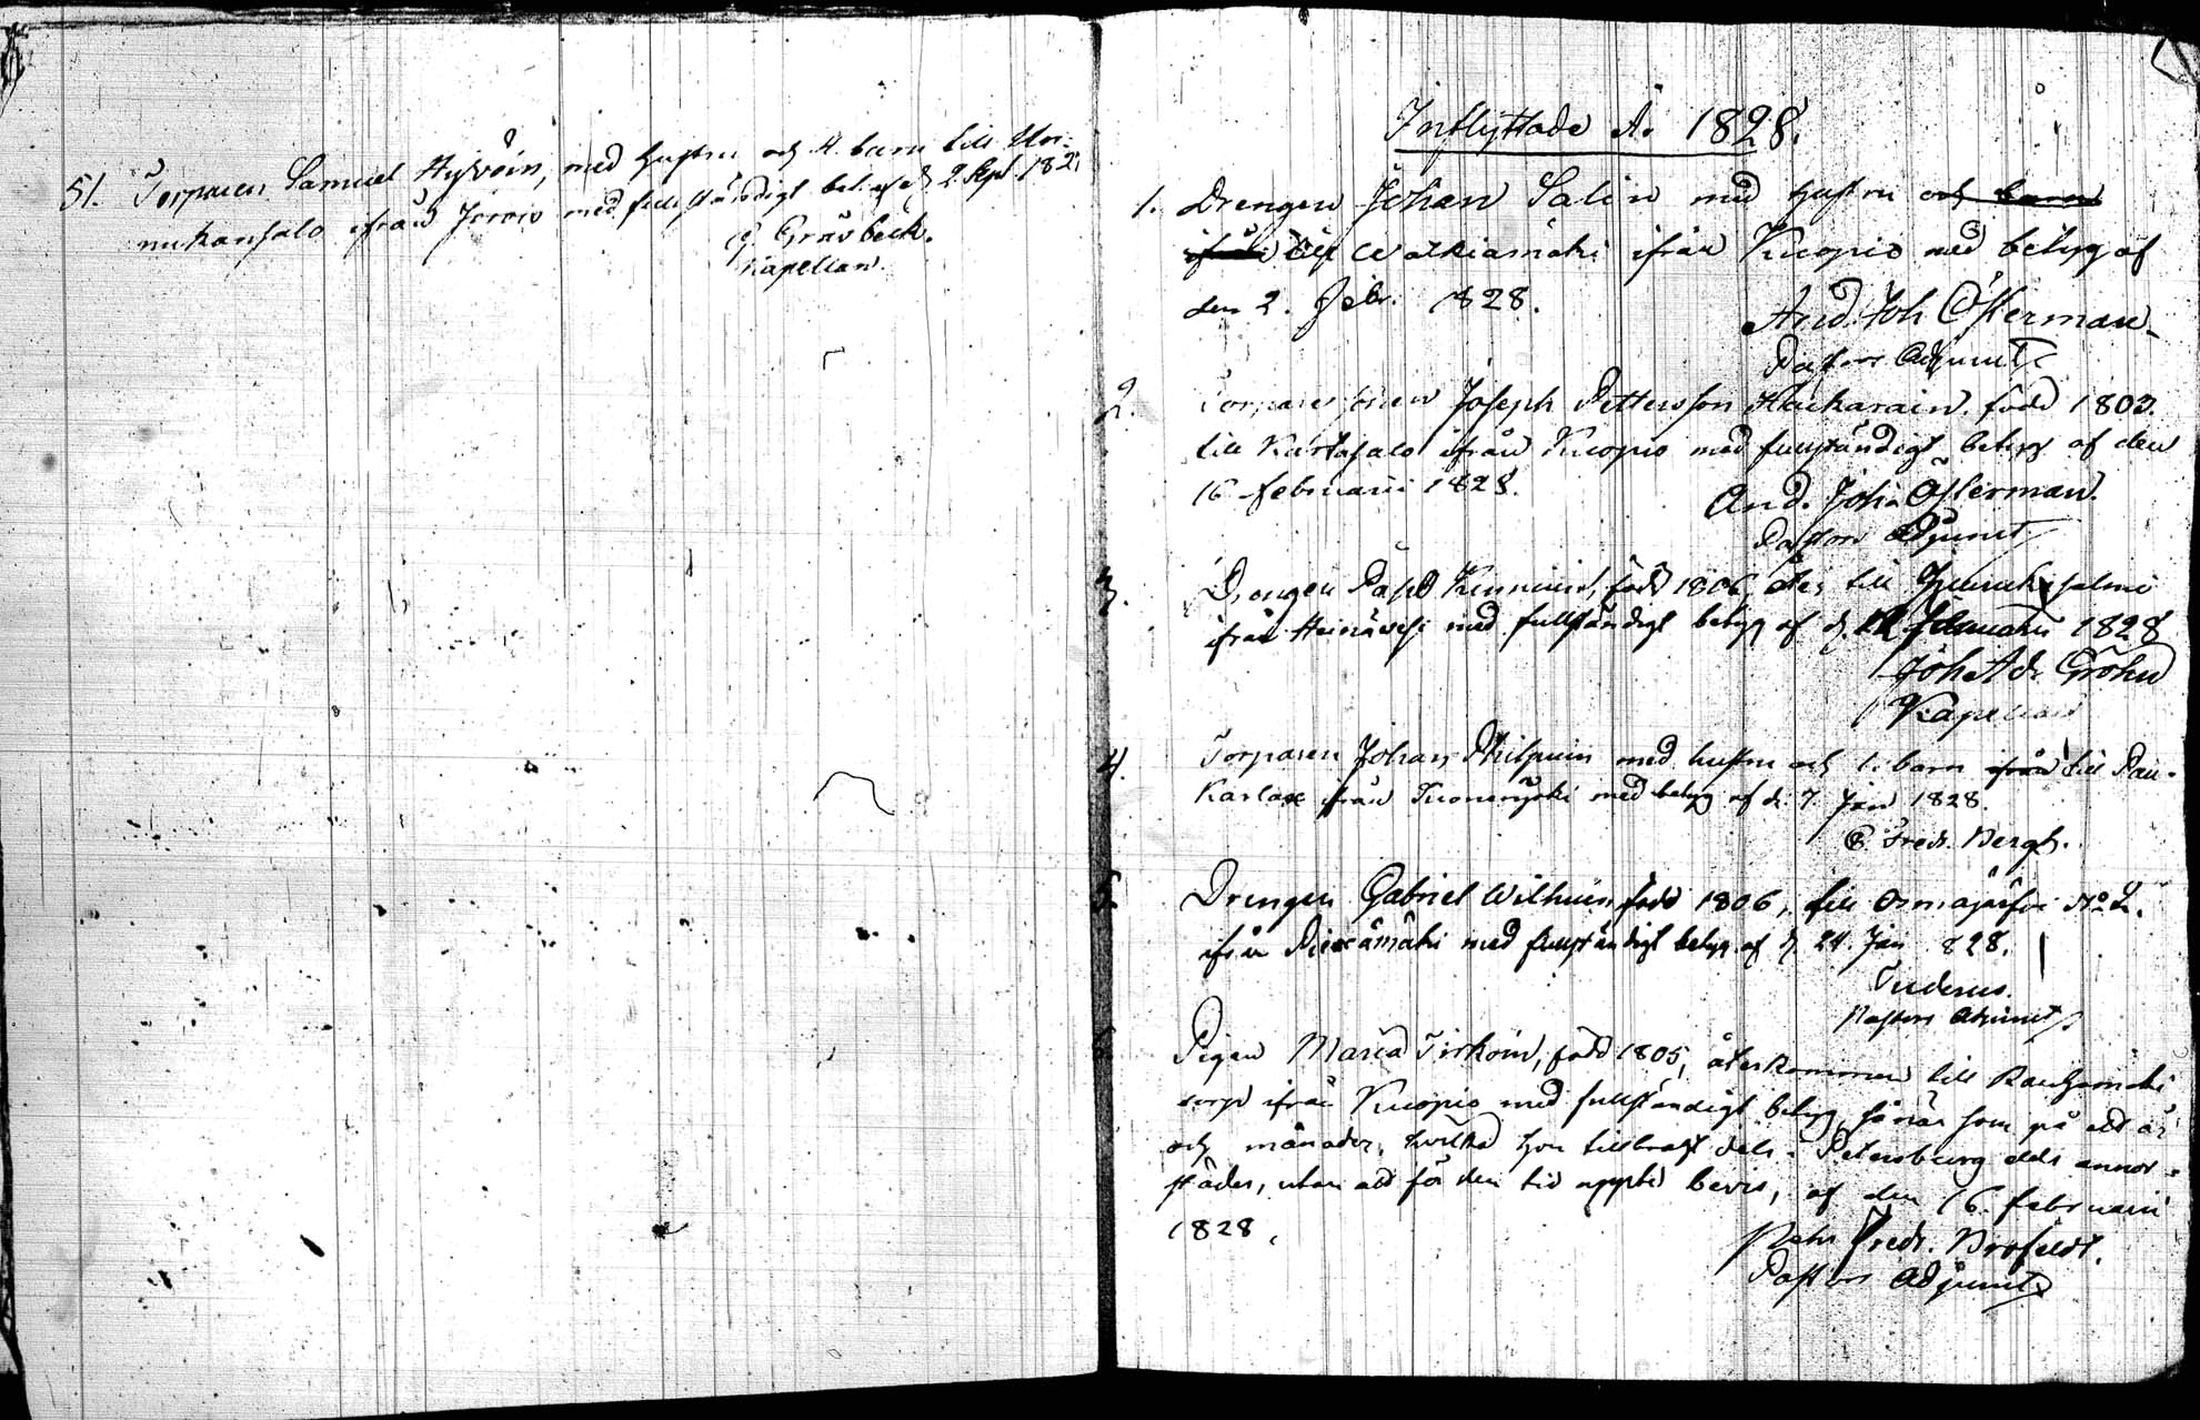 51. Torparen Samuel Hyvöin, med hustru och 4. barn till Mon-
nukansalo ifrån Jorois med fullständigt bet. af d. 2 Sept. 182
G. Gräsbeck.
Kapellan.
Inflyttade År 1828.
1. Drengen Johan Salin med hustru och barn
ifrån till Walkiamäki ifrån Kuopio med betyg af
den 2. Febr. 1828.
And. Joh Österman
Pastors Adjunct
2. Torparesonen Joseph Pettersson Kackarain. född 1803.
till Kurtasalo ifrån Kuopio med fullständigt betyg af den
16 februarii 1828.
And. Joh. Österman.
Pastors Adjunct
3. Drengen född 1806, till
ifrån Heinävesi med fullständigt betyg af d. Februarii 1828
Joh. Ad. Gröhn
Kapellan
4. Torparen Johan med hustru och 1. barn ifrån till Pau-
karlax ifrån med betyg af d. 7 Jan 1828.
Fredr. Bergh.
5. Drengen Gabriel Wilhuin född 1806, till Osmajärfvi No 2.
ifrån Piexämäki med fullständigt betyg af d. 24. Jan 828.
Tuderus.
Pastors Adjunct
6. Pigan Maria Tirkoin, född 1805, återkommen till
ifrån Kuopio med fullständigt betyg, så när som på ett år
och månader, hvilka hon tillbragt dels i Petersburg dels annor-
städes, utan att för den tid uppte bevis, af den 16. februarii
1828.
Petr Fredr. Brofeldt.
Pastors Adjunct